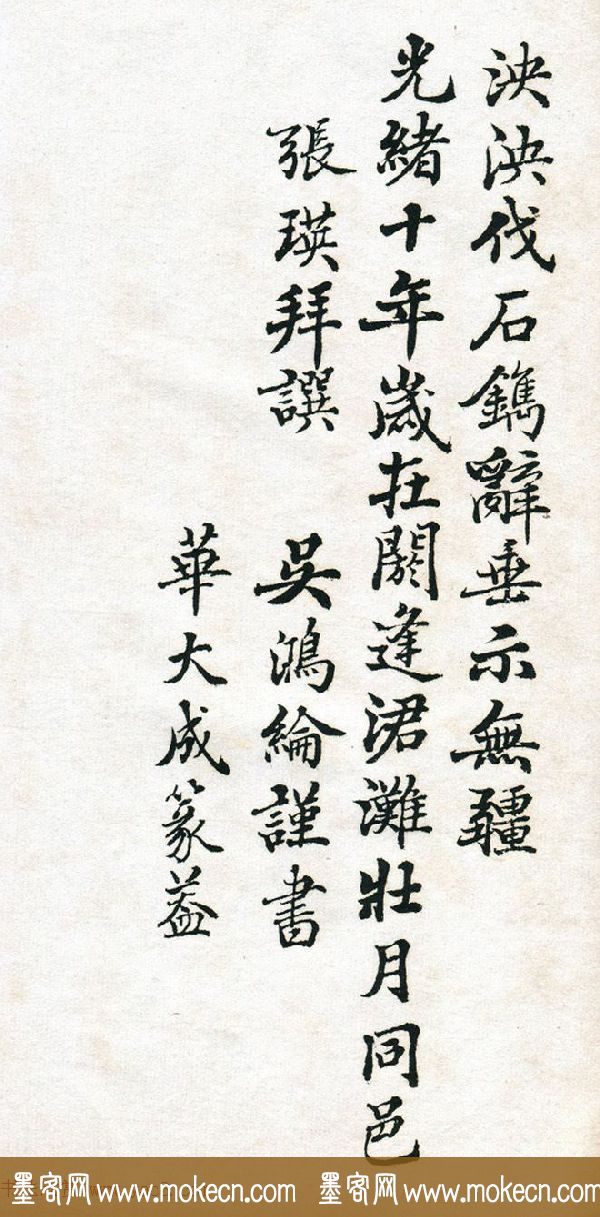 泱泱伐石鐫辭垂示無疆
光緒十年歲在閼逢涒灘壯月同邑
張瑛拜譔
吳鴻綸謹書
華大成篆葢
墨客网 www.mokecn.com 墨客网 www.mokecn.com